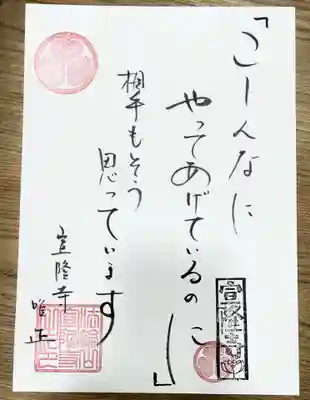 「こーんなに
やってあげているのに」
相手もそう
思っています
宣隆寺
唯正
宣隆寺